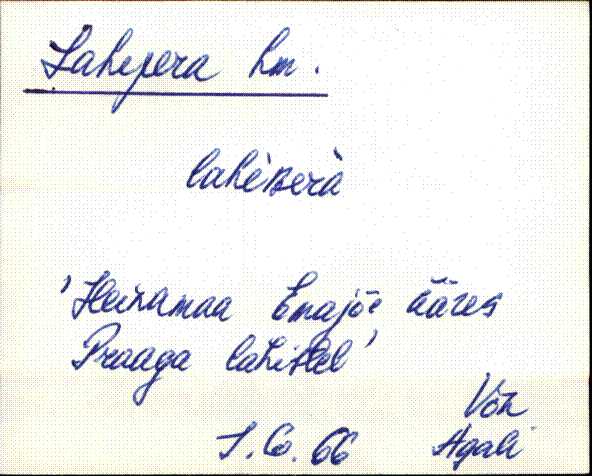 Lahepera hm.
lahèʙerà
'Heinamaa Emajõe ääres
Praaga lahistel'
Võn
Agali
J. Co. 66